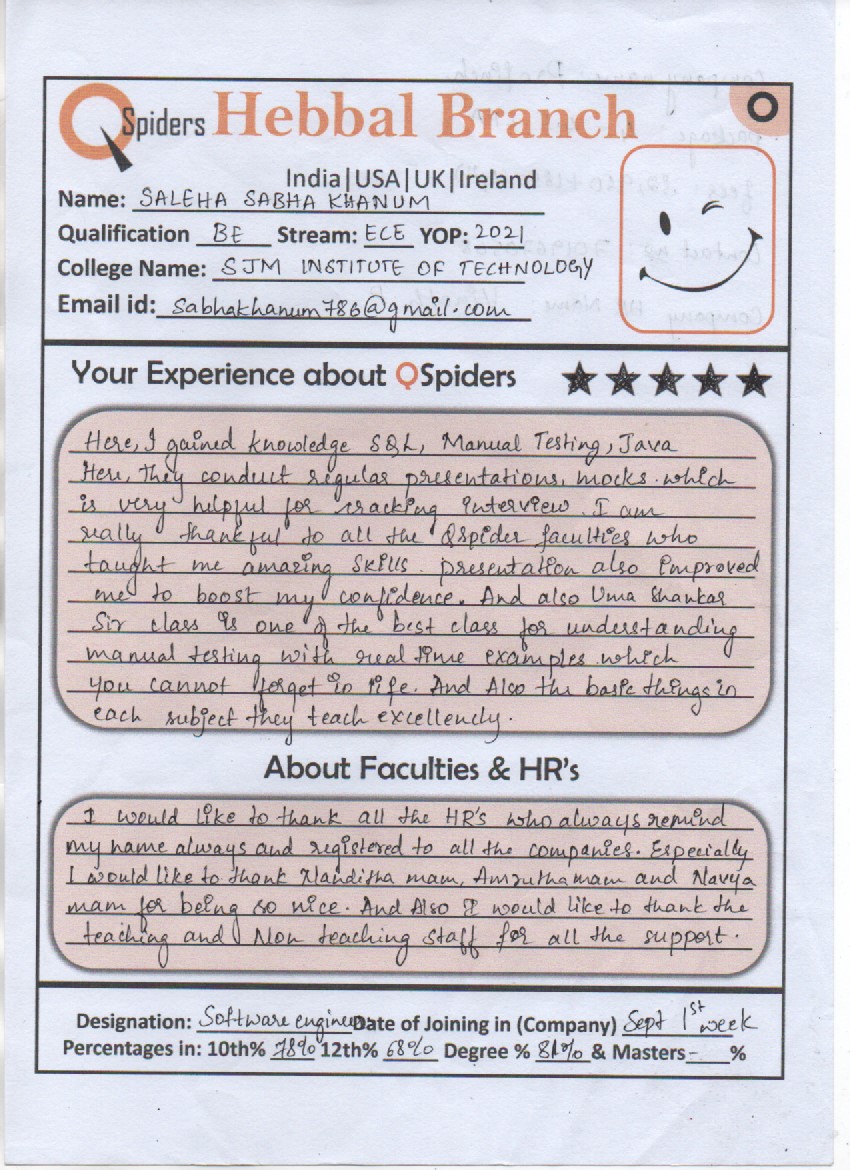 QSpiders Hebbal Branch
India|USA|UK|Ireland
Name: SALEHA SABHA KHANUM
Qualification BE Stream: ECE YOP: 2021
College Name: SJM INSTITUTE OF TECHNOLOGY
Email id: sabhakhanum786@gmail.com
Your Experience about QSpiders
Here, I gained knowledge SQL, Manual Testing, Java
Here, they conduct regular presentations, mocks. which
is very helpful for cracking interview. I am
really thankful to all the QSpider faculties who
taught me amazing skills. presentation also improved
me to boost my confidence. And also Uma Shankar
Sir class is one of the best class for understanding
manual testing with real time examples. which
you cannot forget in life. And Also the basic things in
each subject they teach excellently.
About Faculties & HR's
I would like to thank all the HR's who always remind
my name always and registered to all the companies. Especially
I would like to thank Nanditha mam, Amrutha mam and Navya
mam for being so nice. And Also I would like to thank the
teaching and Non teaching staff for all the support.
Designation: Software engineer Date of Joining in (Company) Sept 1st week
Percentages in: 10th% 78% 12th% 68% Degree % 81% & Masters - %